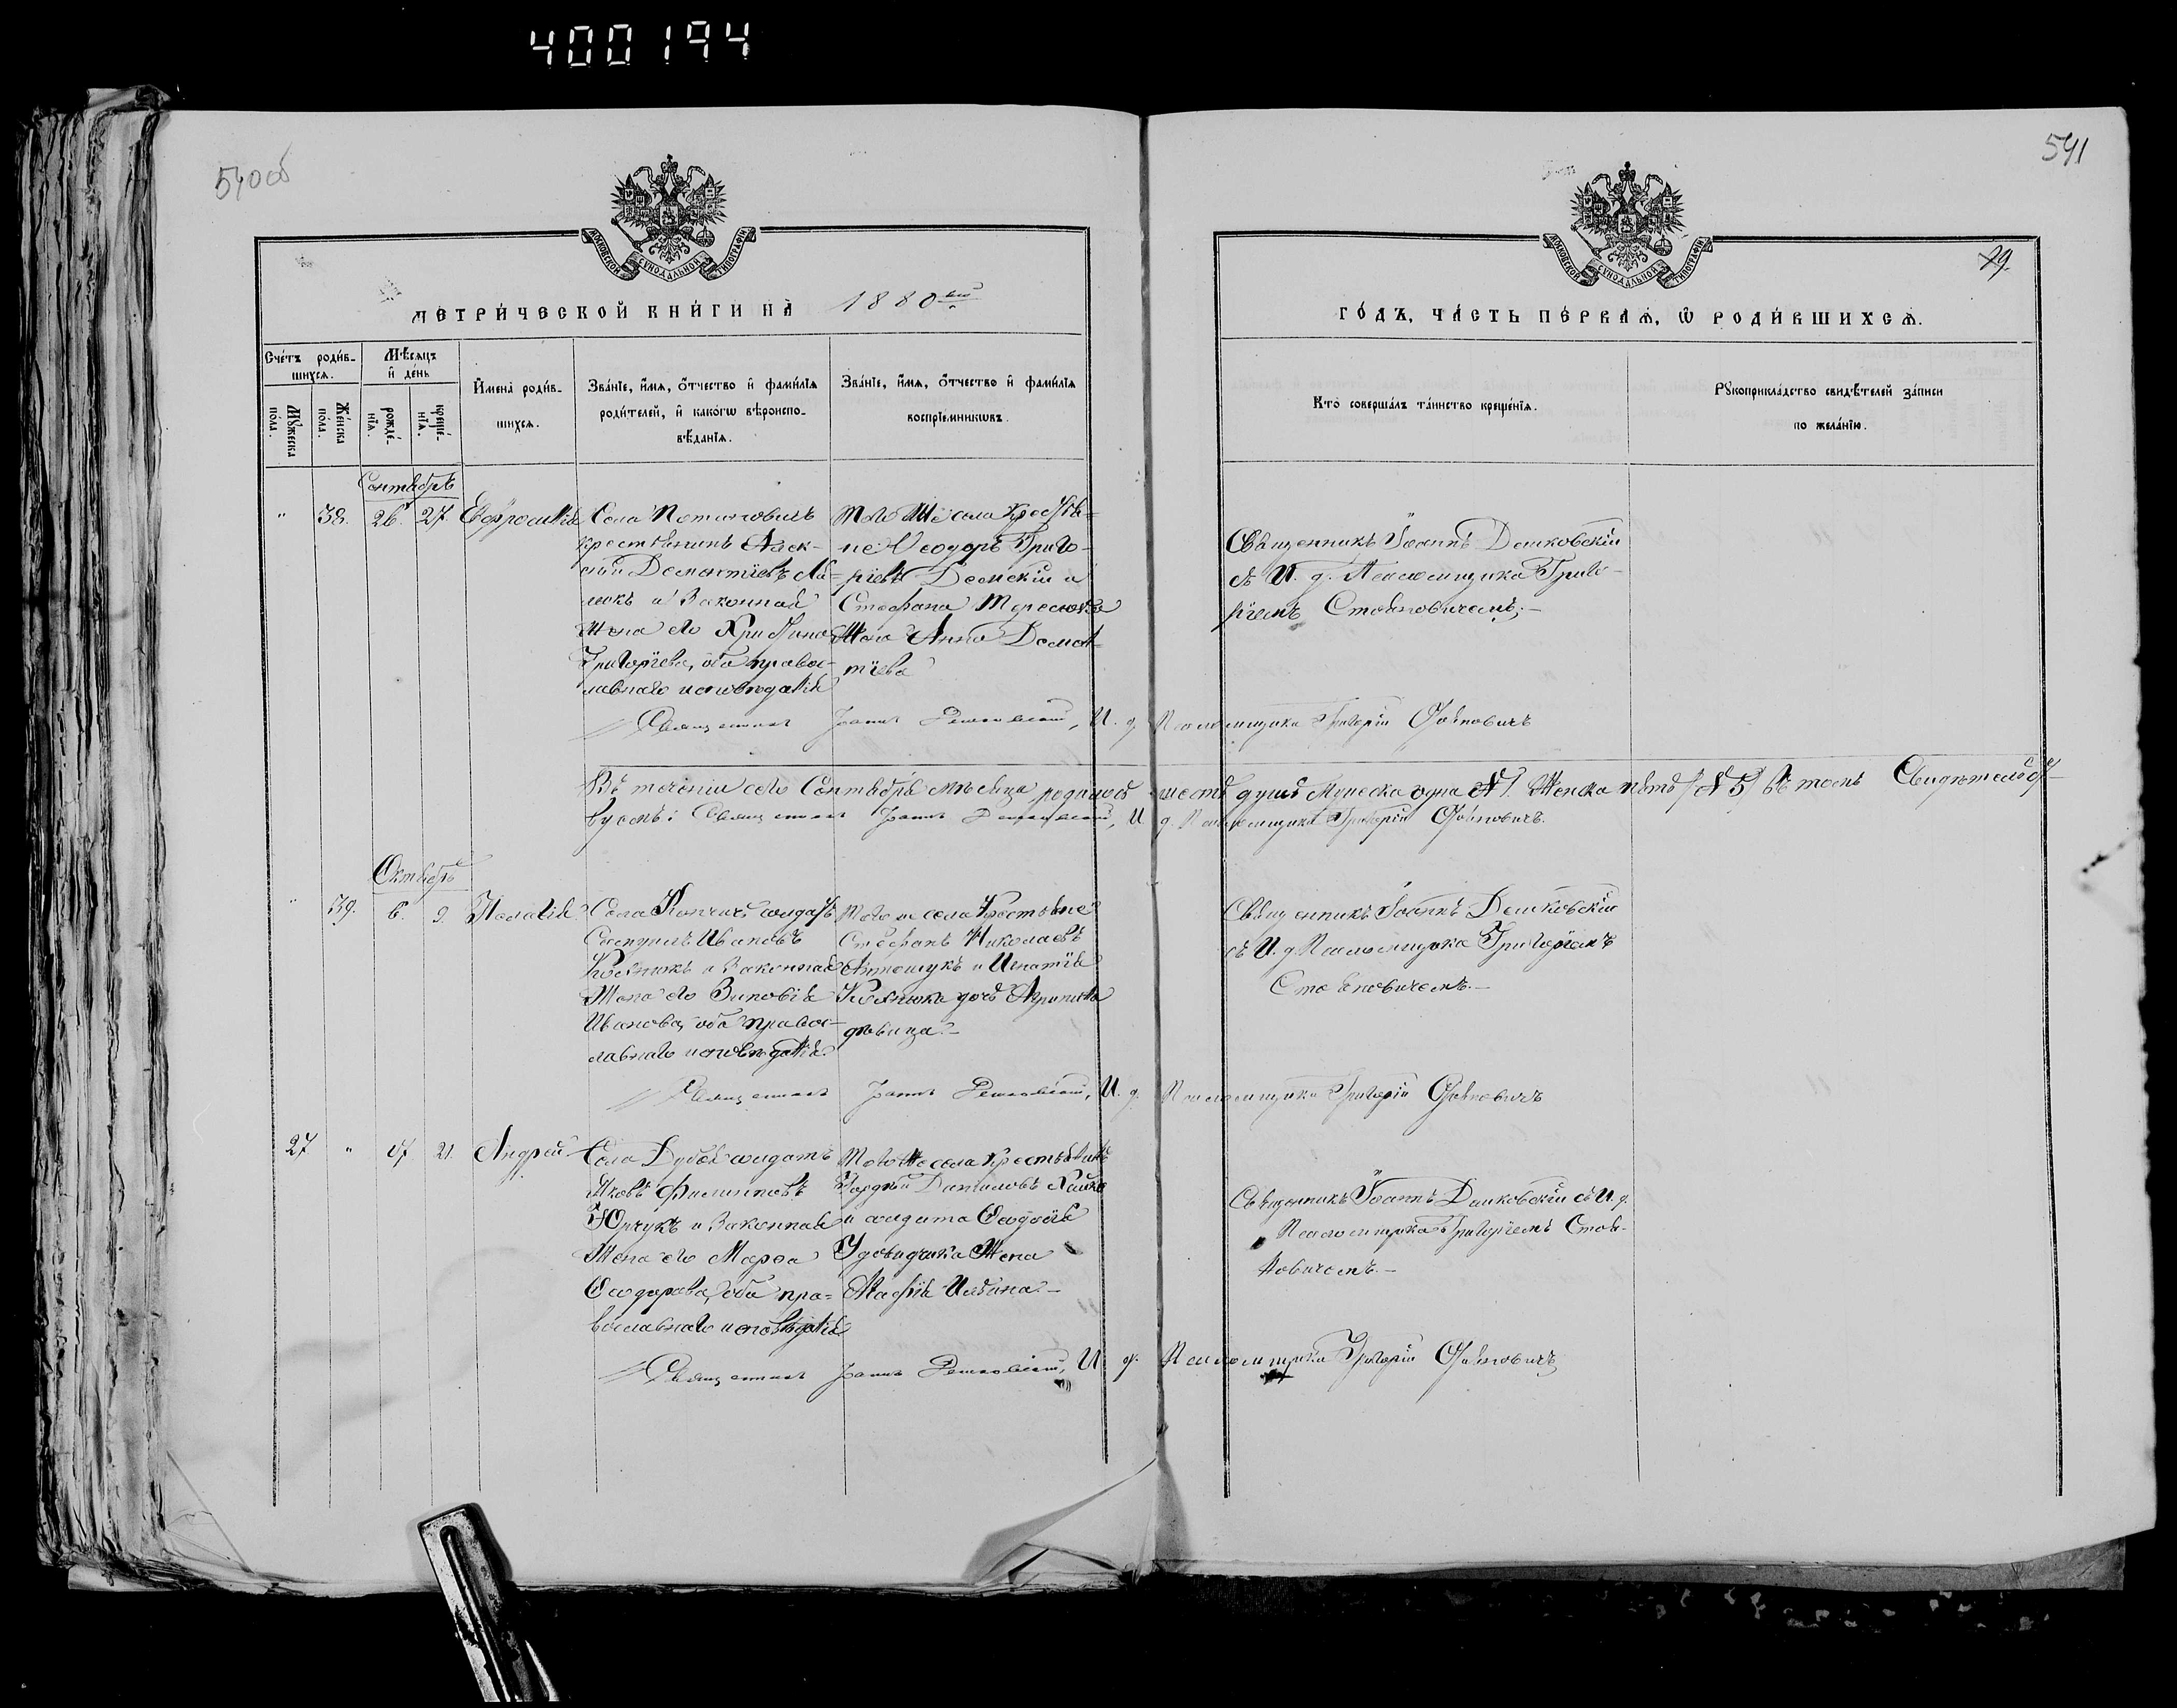 400194
540об
541
МОСКОВСКОЙ СѴНОДАЛЬНОЙ ТИПОГРАФІИ
МОСКОВСКОЙ СѴНОДАЛЬНОЙ ТИПОГРАФІИ
79.
МЕТРИ́ЧЕСКОЙ КНИ́ГИ НА̀ 1880
ГО́ДЪ, ЧА́СТЬ ПЕ́РВАѦ, Ѡ҆ РОДИ́ВШИХСѦ.
Сче́тъ роди́в-
шихсѧ.
Мѣ́сѧцъ
и҆ де́нь
Мꙋ́жеска
по́ла.
Же́нска
по́ла.
рожде́-
нїѧ.
креще́-
нїѧ.
И҆мена̀ роди́в-
шихсѧ.
Зва́нїе, и҆́мѧ, ѻ҆́тчество и҆ фами́лїѧ
роди́телей, и҆ како́гѡ вѣроиспо-
вѣ́данїѧ.
Зва́нїе, и҆́мѧ, ѻ҆́тчество и҆ фами́лїѧ
воспрїе́мникѡвъ.
Кто̀ соверша́лъ та́инство креще́нїѧ.
Рꙋкоприкла́дство свидѣ́телей за́писи
по жела́нїю.
Сентябрь
" 38. 26. 27. Евфросинія
Села
крестьянинъ Алек-
сій Дементіевъ
и законная
жена его Христина
Григоріева, оба правос-
лавнаго исповѣданія
Того же села крестья=
не Ѳеодоръ Григо-
ріевъ и
Стефана
жена Анна Демен=
тіева
Священникъ Іоаннъ Дешковскій
съ И. д. Псаломщика Григо-
ріемъ Стояновичемъ;-
Священникъ Іоаннъ Дешковскій, И. д. Псаломщика Григорій Стояновичъ
Въ теченіи сего Сентября мѣсяца родилось шесть душъ Мужеска одна №1. Женска пять /№5/ въ томъ Свидѣтельст-
вуемъ: Священникъ Іоаннъ Дешковскій, И. д. Псаломщика Григорій Стояновичъ.
Октябрь
" 39. 6. 9. Пелагія
Села солдатъ
Ивановъ
и законная
жена его Зиновія
Иванова, оба правос-
лавнаго исповѣданія
Того же села крестьяне
Стефанъ Николаевъ
и Игнатія
дочь
дѣвица.-
Священникъ Іоаннъ Дешковскій
съ И. д. Псаломщика Григоріемъ
Стояновичемъ.-
Священникъ Іоаннъ Дешковскій, И. д. Псаломщика Григорій Стояновичъ
27. " 21. Андрей
Села солдатъ
Яковъ Филипповъ
Юрчукъ и законная
жена его Марѳа
Ѳеодорова, оба пра=
вославнаго исповѣданія
Того же села крестьянинъ
Даниловъ
и солдата
жена
Ильина.-
Священникъ Іоаннъ Дешковскій съ И. д.
Псаломщика Григоріемъ Стоя-
новичемъ.-
Священникъ Іоаннъ Дешковскій, И. д. Псаломщика Григорій Стояновичъ